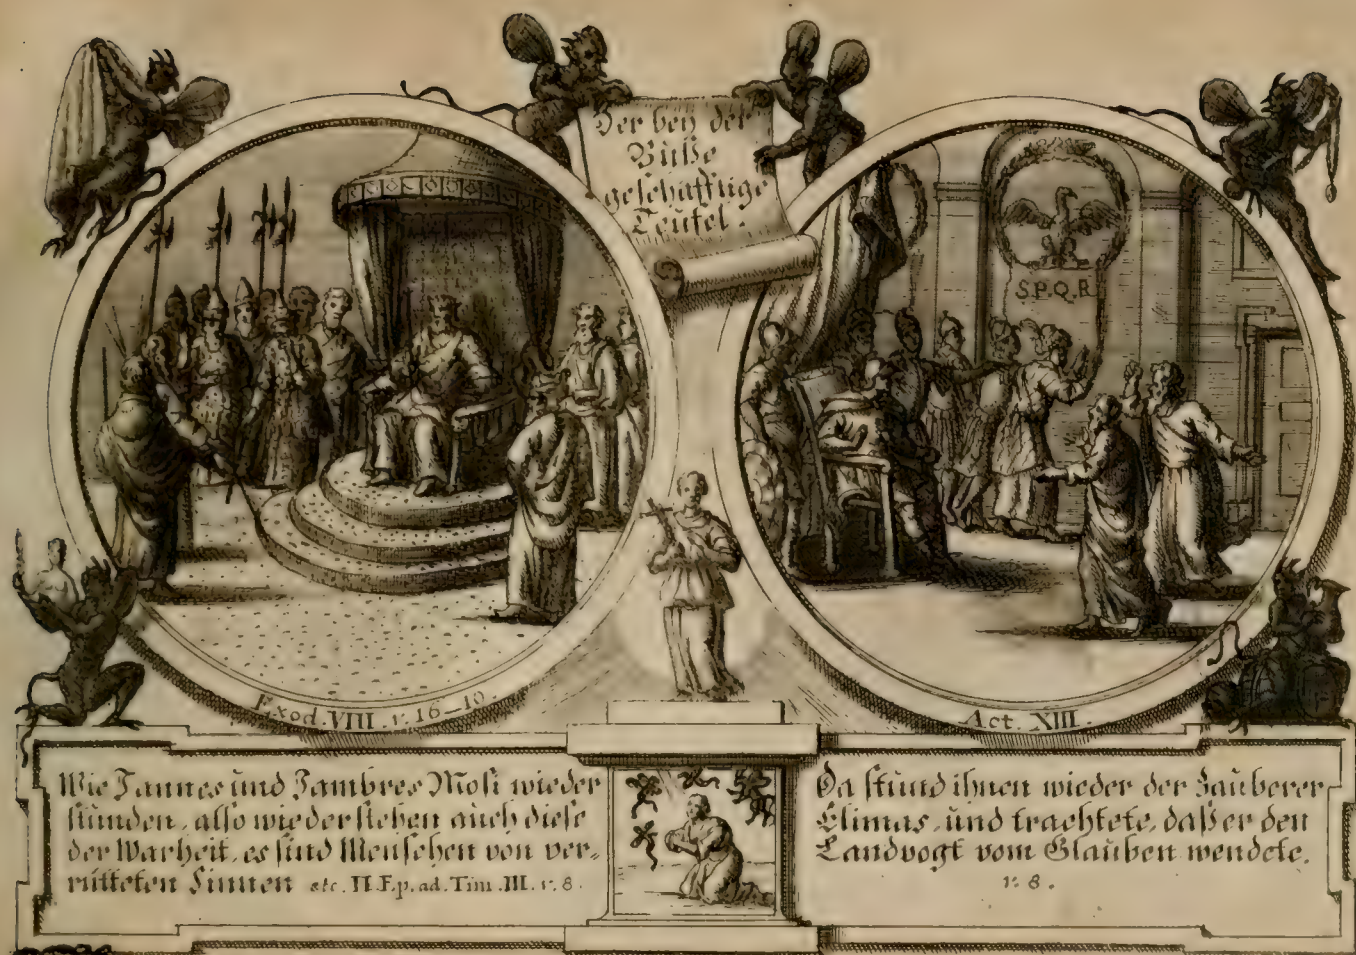 Der bey der
Buße
geschäfftige
Teufel.
S.P.Q.R
Exod. VIII. v. 16–19.
Act. XIII.
Wie Jannes und Jambres Mosi wieder
stunden, also wiederstehen auch diese
der Warheit, es sind Menschen von ver=
rütteten Sinnen etc. II. Ep. ad. Tim. III. v. 8.
Da stund ihnen wieder der Zauberer
Elimas, und trachtete, daß er den
Landvogt vom Glauben wendete.
v. 8.